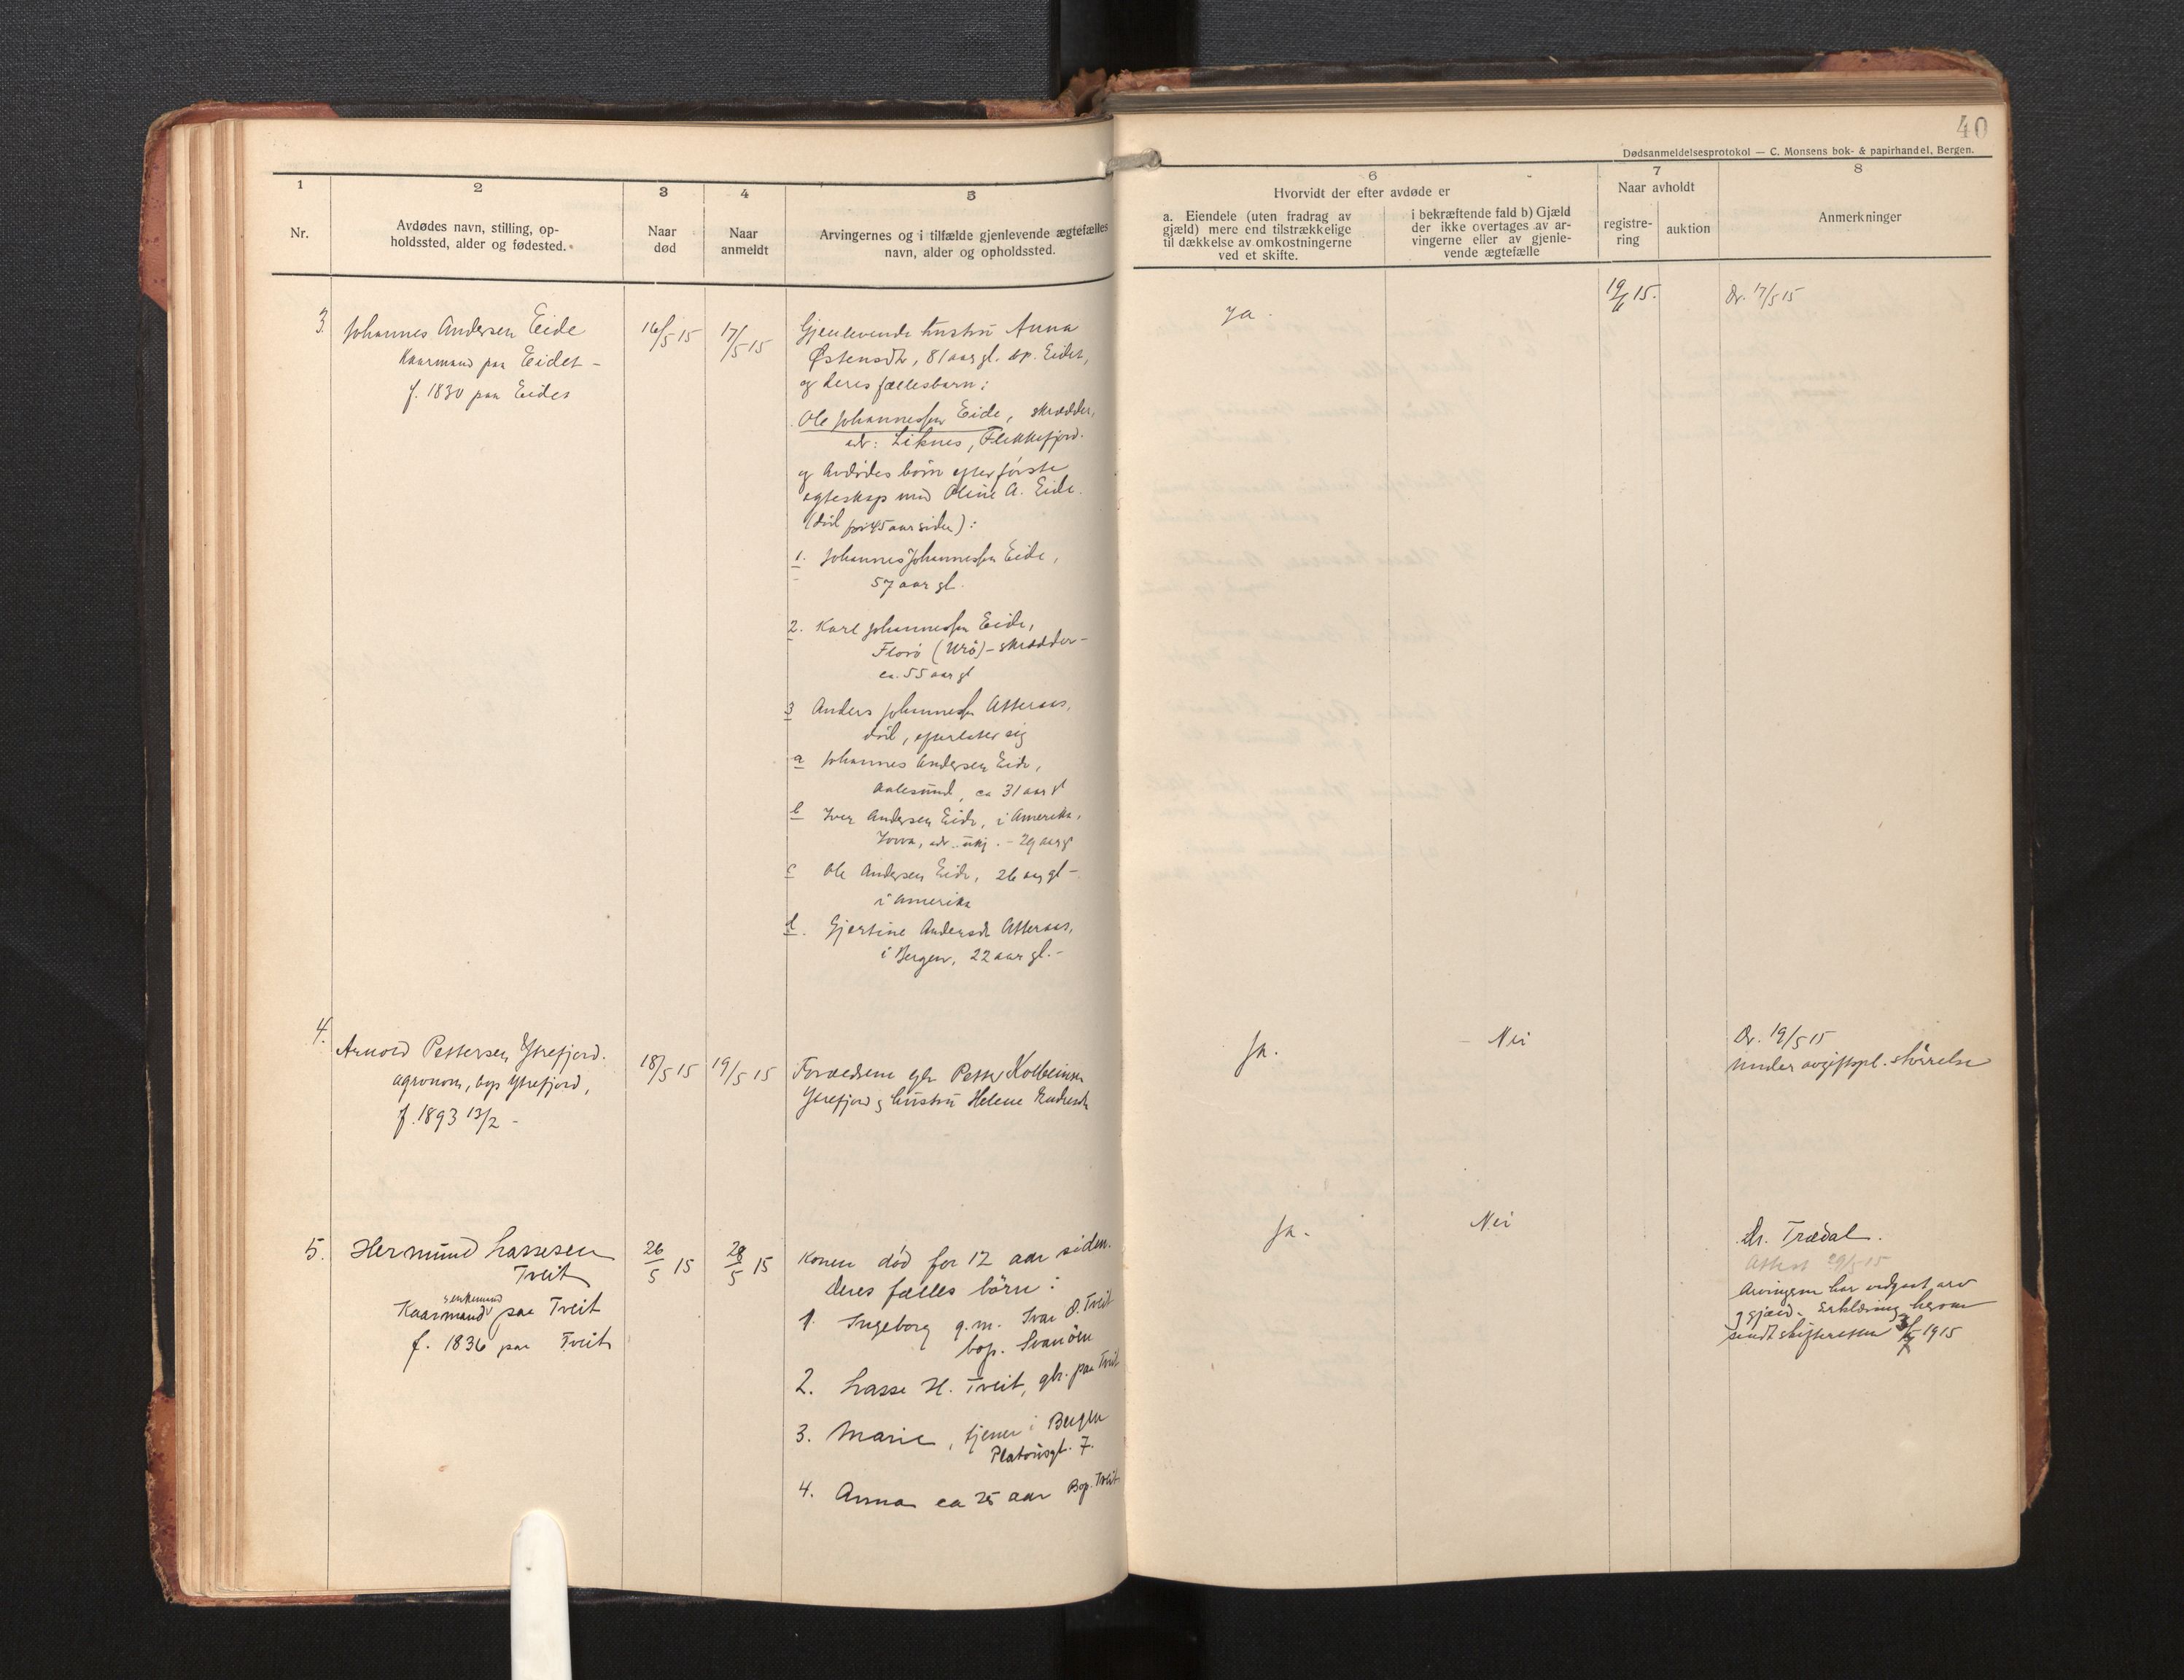 40
Dødsanmeldelsesprotokol — C. Monsens bok- & papirhandel, Bergen.
1
2
3
4
5
6
7
8
Nr.
Avdødes navn, stilling, op-
holdssted, alder og fødested.
Naar
død
Naar
anmeldt
Arvingernes og i tilfælde gjenlevende ægtefælles
navn, alder og opholdssted.
Hvorvidt der efter avdøde er
a. Eiendele (uten fradrag av
gjæld) mere end tilstrækkelige
til dækkelse av omkostningerne
ved et skifte.
i bekræftende fald b) Gjæld
der ikke overtages av ar-
vingerne eller av gjenle-
vende ægtefælle
Naar avholdt
registre-
ring
auktion
Anmerkninger
3.
Johannes Andersen Eide
Kaarmand paa Eidet -
f. 1830 paa Eidet
16/5 15
17/5 15
Gjenlevende hustru Anna
Østensdtr, 81 aar gl. bp. Eidet,
og deres fællesbarn:
Ole Johannessen Eide, skrædder,
adr: Liknes, Flekkefjord.
og Avdødes børn efter første
egteskap med Oline A. Eide.
(død for 45 aar siden):
1. Johannes Johannessen Eide,
57 aar gl.
2. Karl Johannessen Eide,
Florø (Urø) - skrædder -
ca. 55 aar gl
3 Anders Johannessen Atteraas,
død, efterlater sig
a Johannes Andersen Eide,
Aalesund, ca 31 aar gl
b Iver Andersen Eide, i Amerika,
Iowa, adr. ukj. - 29 aar gl
c Ole Andersen Eide, 26 aar gl -
i Amerika
d. Gjertine Andersdt Atteraas,
i Bergen, 22 aar gl. -
Ja.
19/6 15.
Dr. 17/5 15
4.
Arnold Pettersen Ytrefjord.
agronom, bop Ytrefjord,
f. 1893 13/2 -
18/5 15
19/5 15
Forældrene gbr Petter Kolbeinsen
Ytrefjord og hustru Helene Endresdtr
Ja.
- Nei
Dr. 19/5 15
under avgiftspl. størrelse
5.
Hermund Lassesen
Tveit
enkemand
Kaarmand paa Tveit
f. 1836 paa Tveit
26/5 15
28/5 15
Konen død for 12 aar siden.
deres fælles børn:
1. Ingeborg g.m. Ivar O. Tveit
bop. Svanøen
2. Lasse H. Tveit, gbr. paa Tveit
3. Marie, tjener i Bergen
Platousgt. 7.
4. Anna ca 25 aar Bop. Tveit
Ja.
Nei
Dr. Trædal.
Attest 29/5 15
Arvingerne har vedgaat arv
g gjæld. Erklæring herom
sendt skifteretten 1915